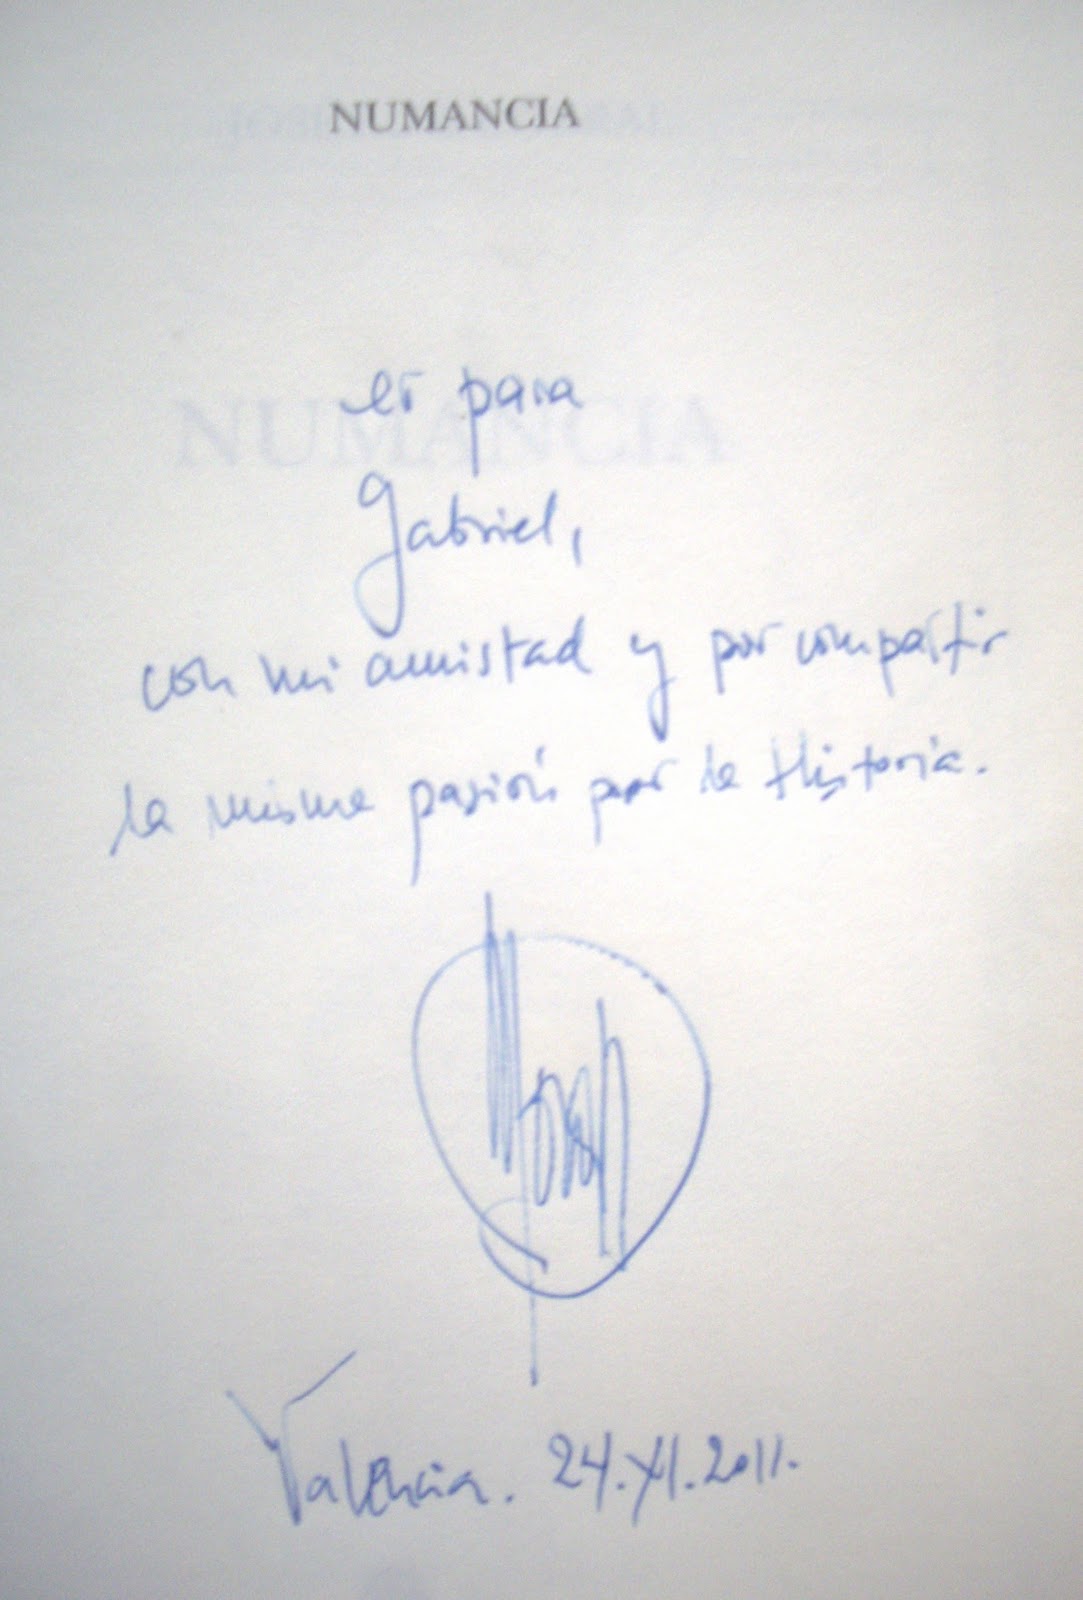 NUMANCIA
es para
Gabriel,
con mi amistad y por compartir
la misma pasión por la Historia.
Valencia. 24.XI.2011.